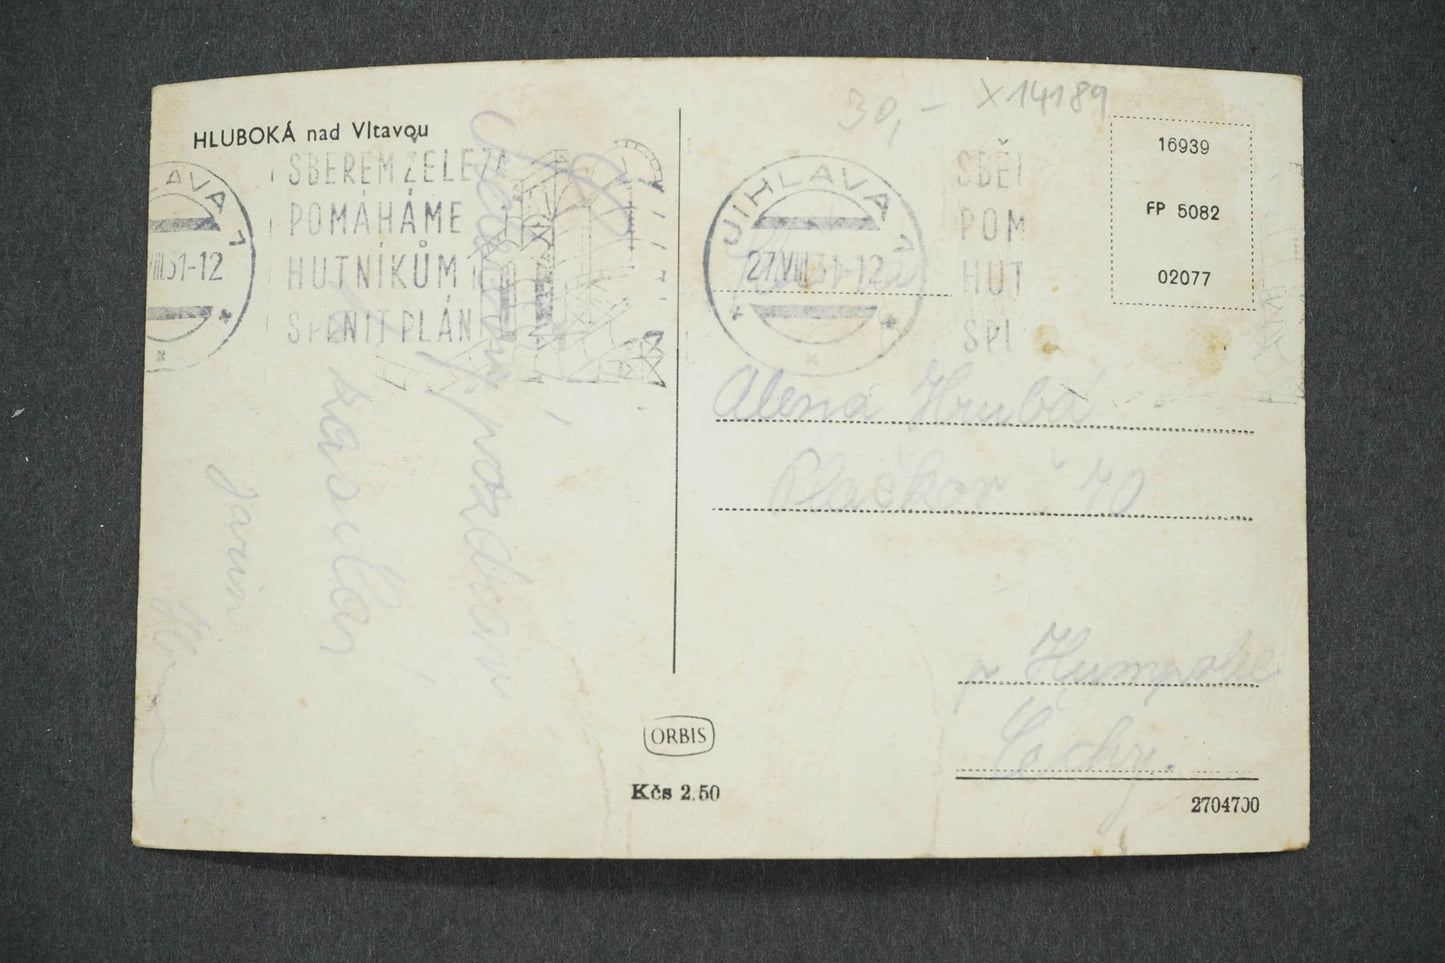 HLUBOKÁ nad Vltavou
JIHLAVA 1
VIII.51-12
SBĚREM ŽELEZA
POMÁHÁME
HUTNÍKŮM
SPLNIT PLÁN
pozdrav
zasílá
30,- X14189
JIHLAVA 1
27.VIII.51-12
SBĚ
POM
HUT
SPL
16939
FP 5082
02077
Alena Hrubá
Plačkov č 70
p Humpolec
Čechy.
ORBIS
Kčs 2.50
2704700